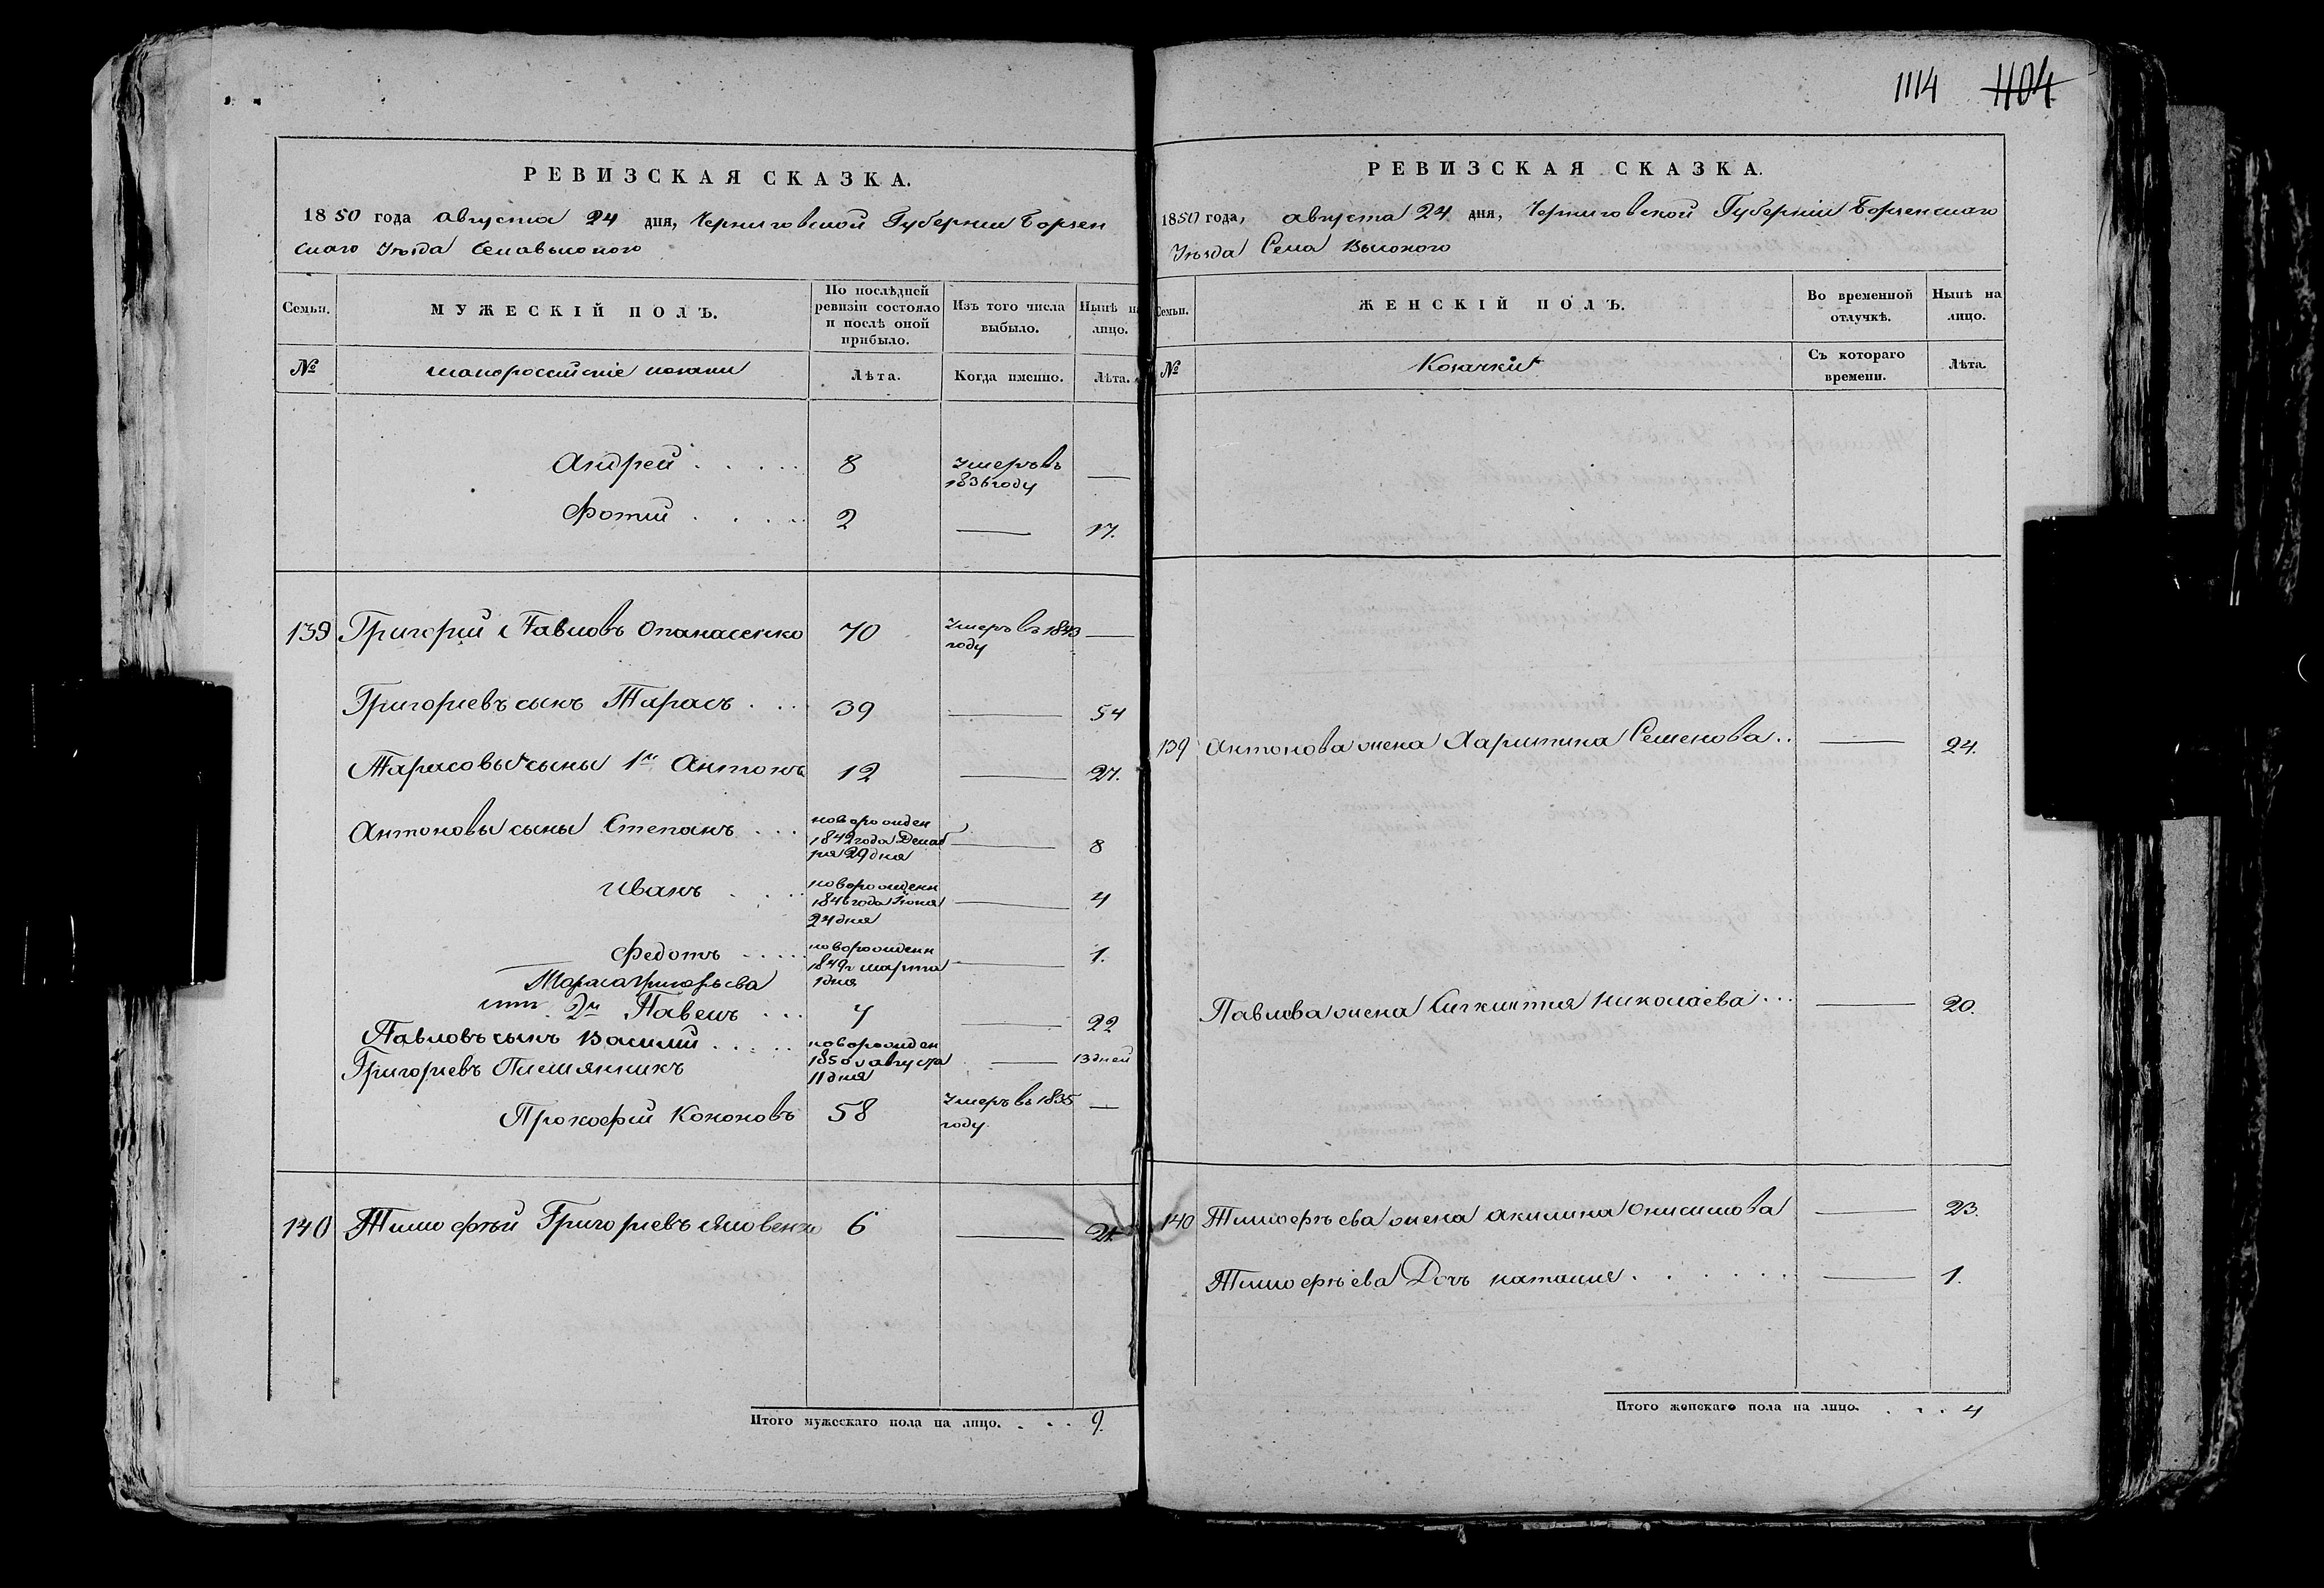 РЕВИЗСКАЯ СКАЗКА.
1850 года августа 24 дня, Черниговской Губернии Борзен
скаго Уѣзда Селавысокого
Семьи.
МУЖЕСКІЙ ПОЛЪ.
По послѣдней ревизіи состояло и послѣ оной прибыло.
Изъ того числа выбыло.
Нынѣ на лицо.
№
малороссийскіе козаки
Лѣта.
Когда именно.
Лѣта.
Андрей . . . . . 8 Умеръ въ 1836 году —
Фотий . . . . . 2 — 17.
139 Григорий Павловъ Опанасенко 70 Умеръ въ 1843 году —
Григориевъ сынъ Тарасъ . . . 39 — 54
Тарасовы сыны 1й Антонъ 12 — 27.
Антоновы сыны Степанъ . . . новорожден 1842 года Декаб ря 29 дня — 8
Иванъ . . . . новорожденн 1846 года Июня 24 дня — 4
Федотъ . . . . . новорожденн 1849 г марта 1 дня — 1.
Тараса Григорьева
2й Павелъ . . . 7 — 22
Павловъ сынъ Василий . . . . . новорожден 1850 г августа 11 дня — 13 дней
Григориевъ Племянникъ
Прокофий Кононовъ 58 Умеръ въ 1835 году. —
140 Тимофѣй Григориевъ Яковенко 6 — 21.
Итого мужескаго пола на лицо. . . . 9.
1114 1104
РЕВИЗСКАЯ СКАЗКА.
1850 года, августа 24 дня, Черниговской Губернии Борзенскаго
Уѣзда Села Высокого
Семьи.
ЖЕНСКІЙ ПОЛЪ.
Во временной отлучкѣ.
Нынѣ на лицо.
№
Козачки
Съ котораго времени.
Лѣта.
139 Антонова жена Харитина Семенова . . — 24.
Павлова жена Синклития Николаева . . . — 20.
140 Тимофѣева жена Акилина Онисимова — 23.
Тимофѣева Дочь Наталия . . . . . . — 1.
Итого женскаго пола на лицо. . . . 4